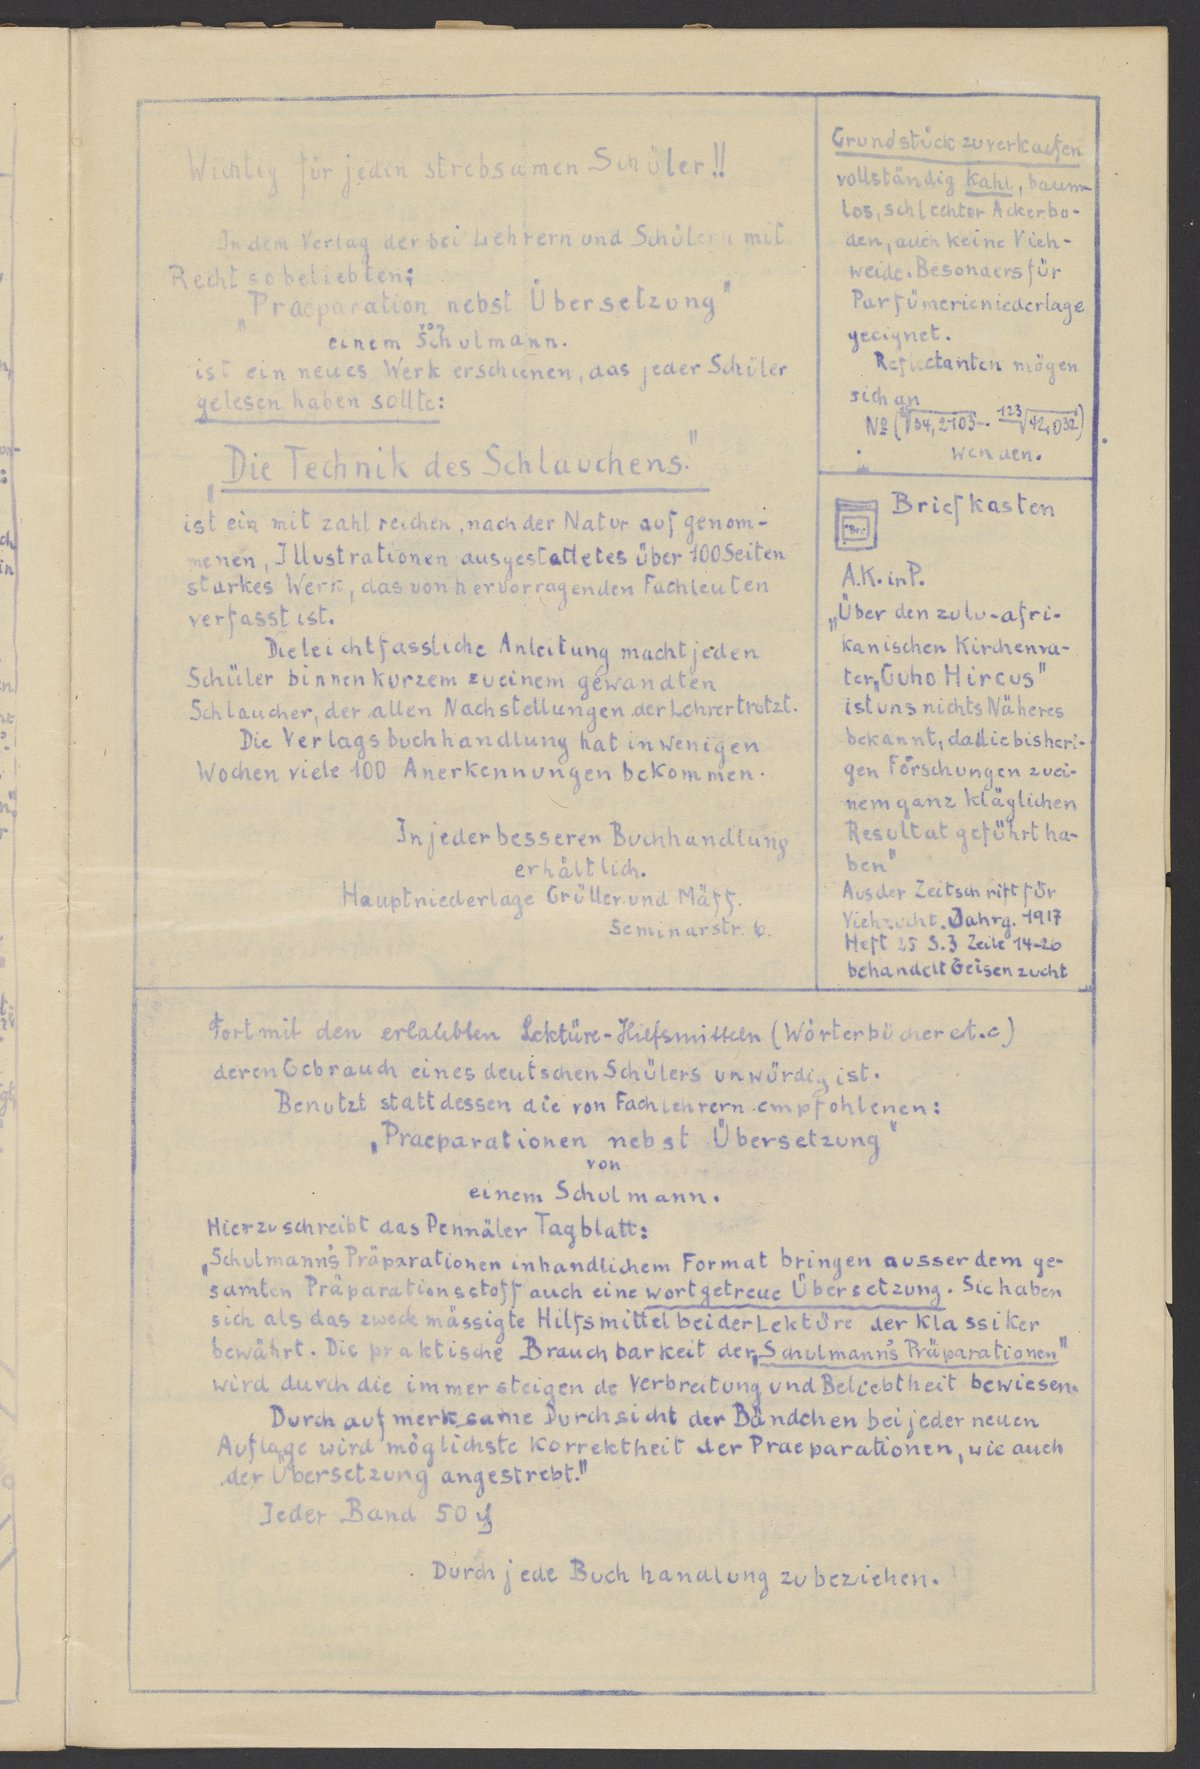 Wichtig für jeden strebsamen Schüler!!
In dem Verlag der bei Lehrern und Schülern mit
Recht so beliebten:
„Praeparation nebst Übersetzung"
von
einem Schulmann.
ist ein neues Werk erschienen, das jeder Schüler
gelesen haben sollte:
„Die Technik des Schlauchens."
ist ein mit zahlreichen, nach der Natur aufgenom-
menen, Illustrationen ausgestattetes über 100 Seiten
starkes Werk, das von hervorragenden Fachleuten
verfasst ist.
Die leichtfassliche Anleitung macht jeden
Schüler binnen kurzem zu einem gewandten
Schlaucher, der allen Nachstellungen der Lehrer trotzt.
Die Verlagsbuchhandlung hat in wenigen
Wochen viele 100 Anerkennungen bekommen.
In jeder besseren Buchhandlung
erhältlich.
Hauptniederlage Grüller und Mäff.
Seminarstr. 6.
Grundstück zu verkaufen
vollständig kahl, baum-
los, schlechter Ackerbo-
den, auch keine Vieh-
weide. Besonders für
Parfümerieniederlage
geeignet.
Reflectanten mögen
sich an
№ (√34,2103 - 123√42,032)
wenden.
"Br."
Briefkasten
A.K. in P.
„Über den zulu-afri-
kanischen Kirchenva-
ter „Guho Hircus"
ist uns nichts Näheres
bekannt, da die bisheri-
gen Forschungen zu ei-
nem ganz kläglichen
Resultat geführt ha-
ben"
Aus der Zeitschrift für
Viehzucht. Jahrg. 1917
Heft 25 S.3 Zeile 14-26
behandelt Geisenzucht
Fort mit den erlaubten Lektüre-Hilfsmitteln (Wörterbücher et.c)
deren Gebrauch eines deutschen Schülers unwürdig ist.
Benutzt statt dessen die von Fachlehrern empfohlenen:
„Praeparationen nebst Übersetzung"
von
einem Schulmann.
Hierzu schreibt das Pennäler Tagblatt:
„Schulmann's Präparationen in handlichem Format bringen ausser dem ge-
samten Präparationsstoff auch eine wortgetreue Übersetzung. Sie haben
sich als das zweckmässigte Hilfsmittel bei der Lektüre der Klassiker
bewährt. Die praktische Brauchbarkeit der „Schulmann's Präparationen"
wird durch die immer steigende Verbreitung und Beliebtheit bewiesen.
Durch aufmerksame Durchsicht der Bändchen bei jeder neuen
Auflage wird möglichste Korrektheit der Praeparationen, wie auch
der Übersetzung angestrebt."
Jeder Band 50 ₰
Durch jede Buchhandlung zu beziehen.